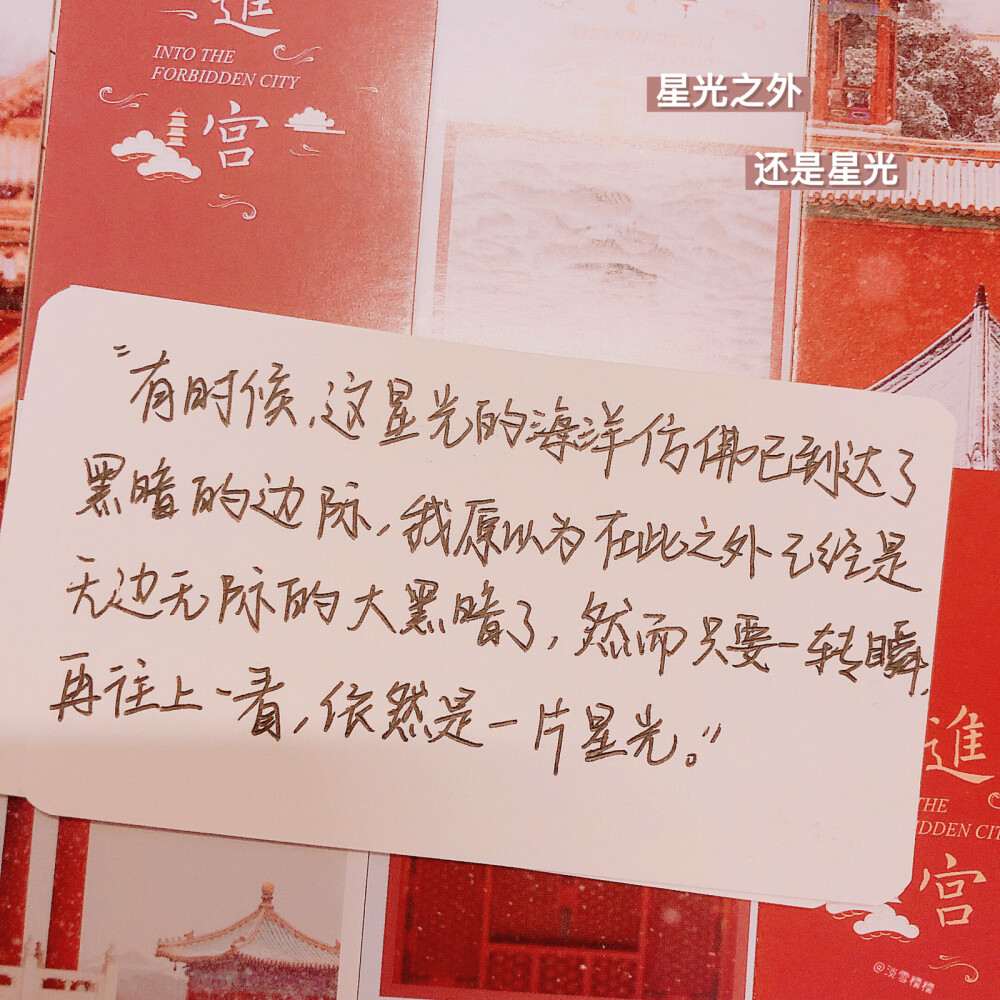 進
INTO THE
FORBIDDEN CITY
宫
星光之外
还是星光
"有时候，这星光的海洋仿佛已到达了
黑暗的边际，我原以为在此之外已经是
无边无际的大黑暗了，然而只要一转瞬，
再往上一看，依然是一片星光。"
進
THE
IDDEN CITY
宫
@淡雪樱樱